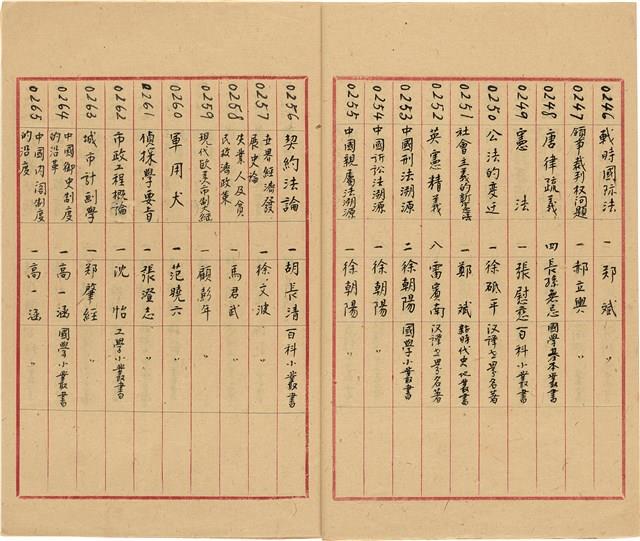 0246 戰時國际法 一 郑斌 〃
0247 領事裁判权问題 一 郝立輿 〃
0248 唐律疏義 四 長孫無忌 國學基本叢書
0249 憲法 一 張慰慈 百科小叢書
0250 公法的變迁 一 徐砥平 汉譯世界名著
0251 社會主義的新憲法 一 鄭斌 新時代史地叢書
0252 英憲精義 八 雷賓南 汉譯世界名著
0253 中國刑法溯源 二 徐朝陽 國學小叢書
0254 中国訴訟法溯源 一 徐朝陽 〃
0255 中國親屬法溯源 一 徐朝陽 〃
0256 契約法論 一 胡長清 百科小叢書
0257 世界經濟發展史論 一 徐文波 〃
0258 失業人及貧民救濟政策 一 馬君武 〃
0259 現代欧美市制大綱 一 顧彭年 〃
0260 軍用犬 一 范曉六 〃
0261 偵探學要旨 一 張澄志 〃
0262 市政工程概論 一 沈怡 工學小叢書
0263 城市計劃學 一 郑肇經 〃
0264 中國御史制度的沿革 一 高一涵 國學小叢書
0265 中國内阁制度的沿革 一 高一涵 〃